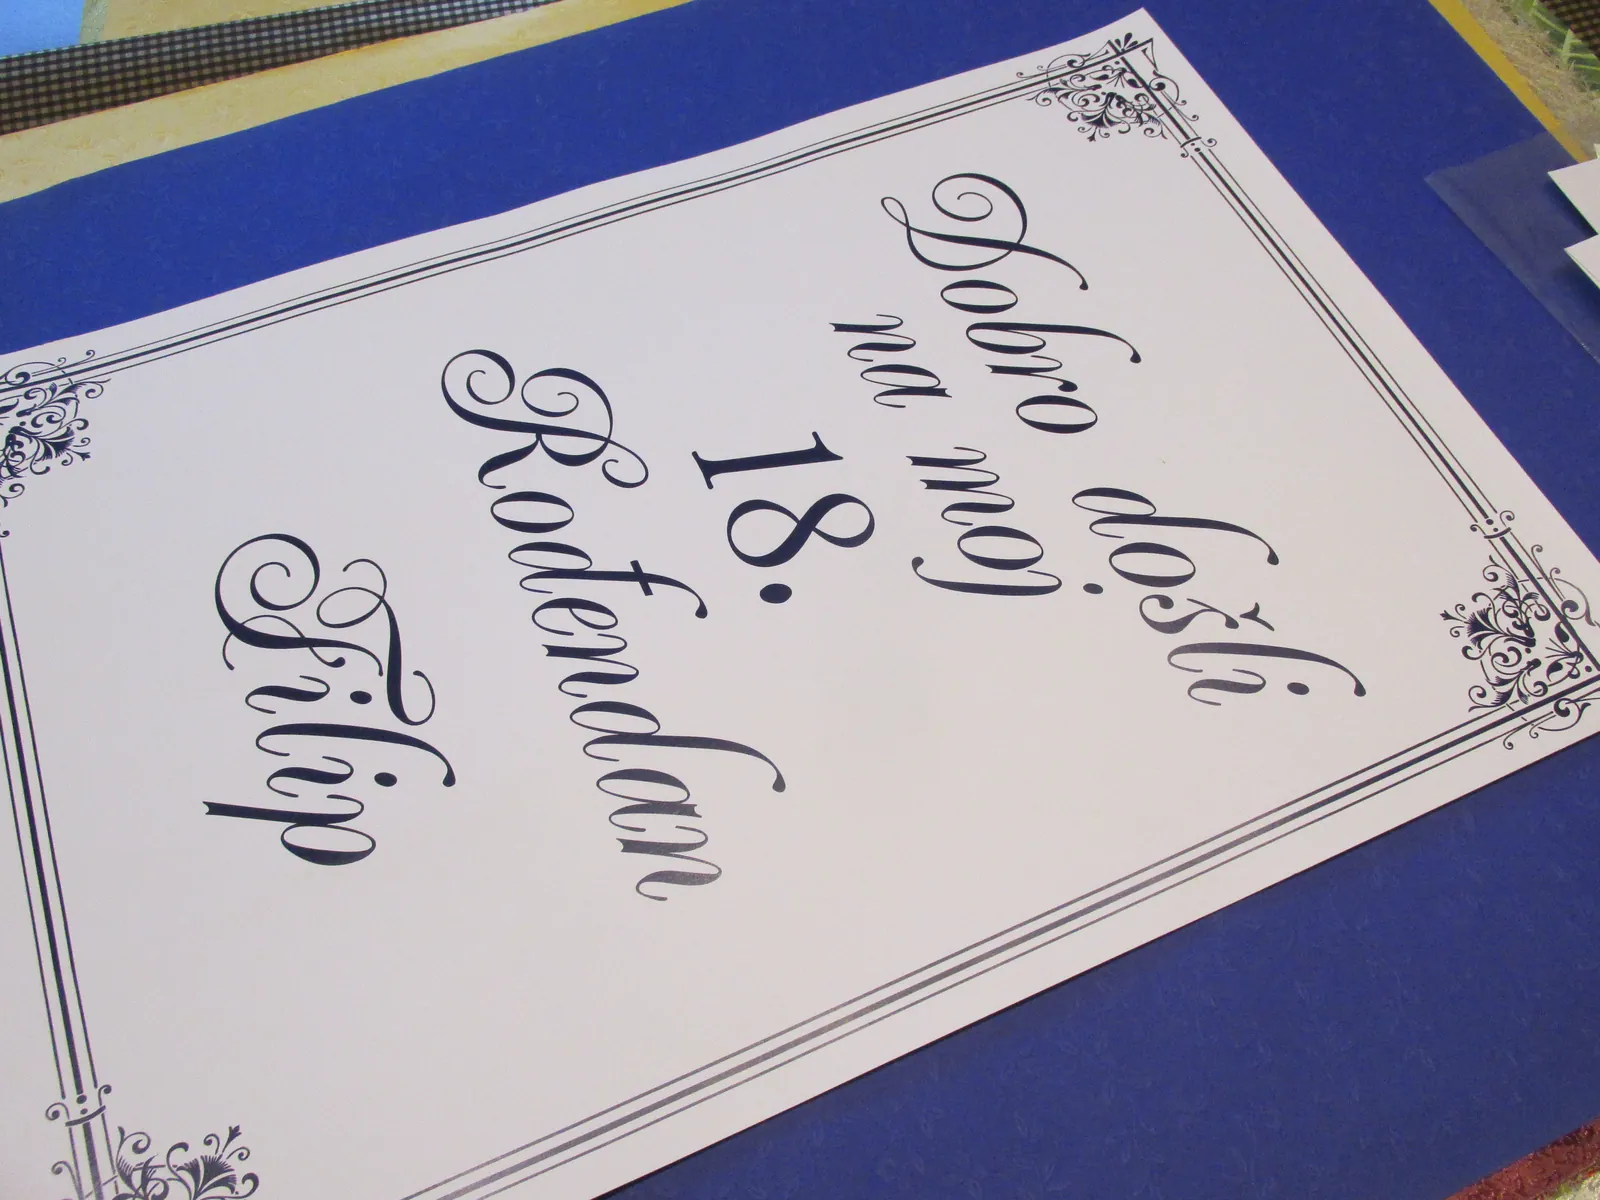 Dobro došli
na moj
18.
Rođendan
Filip